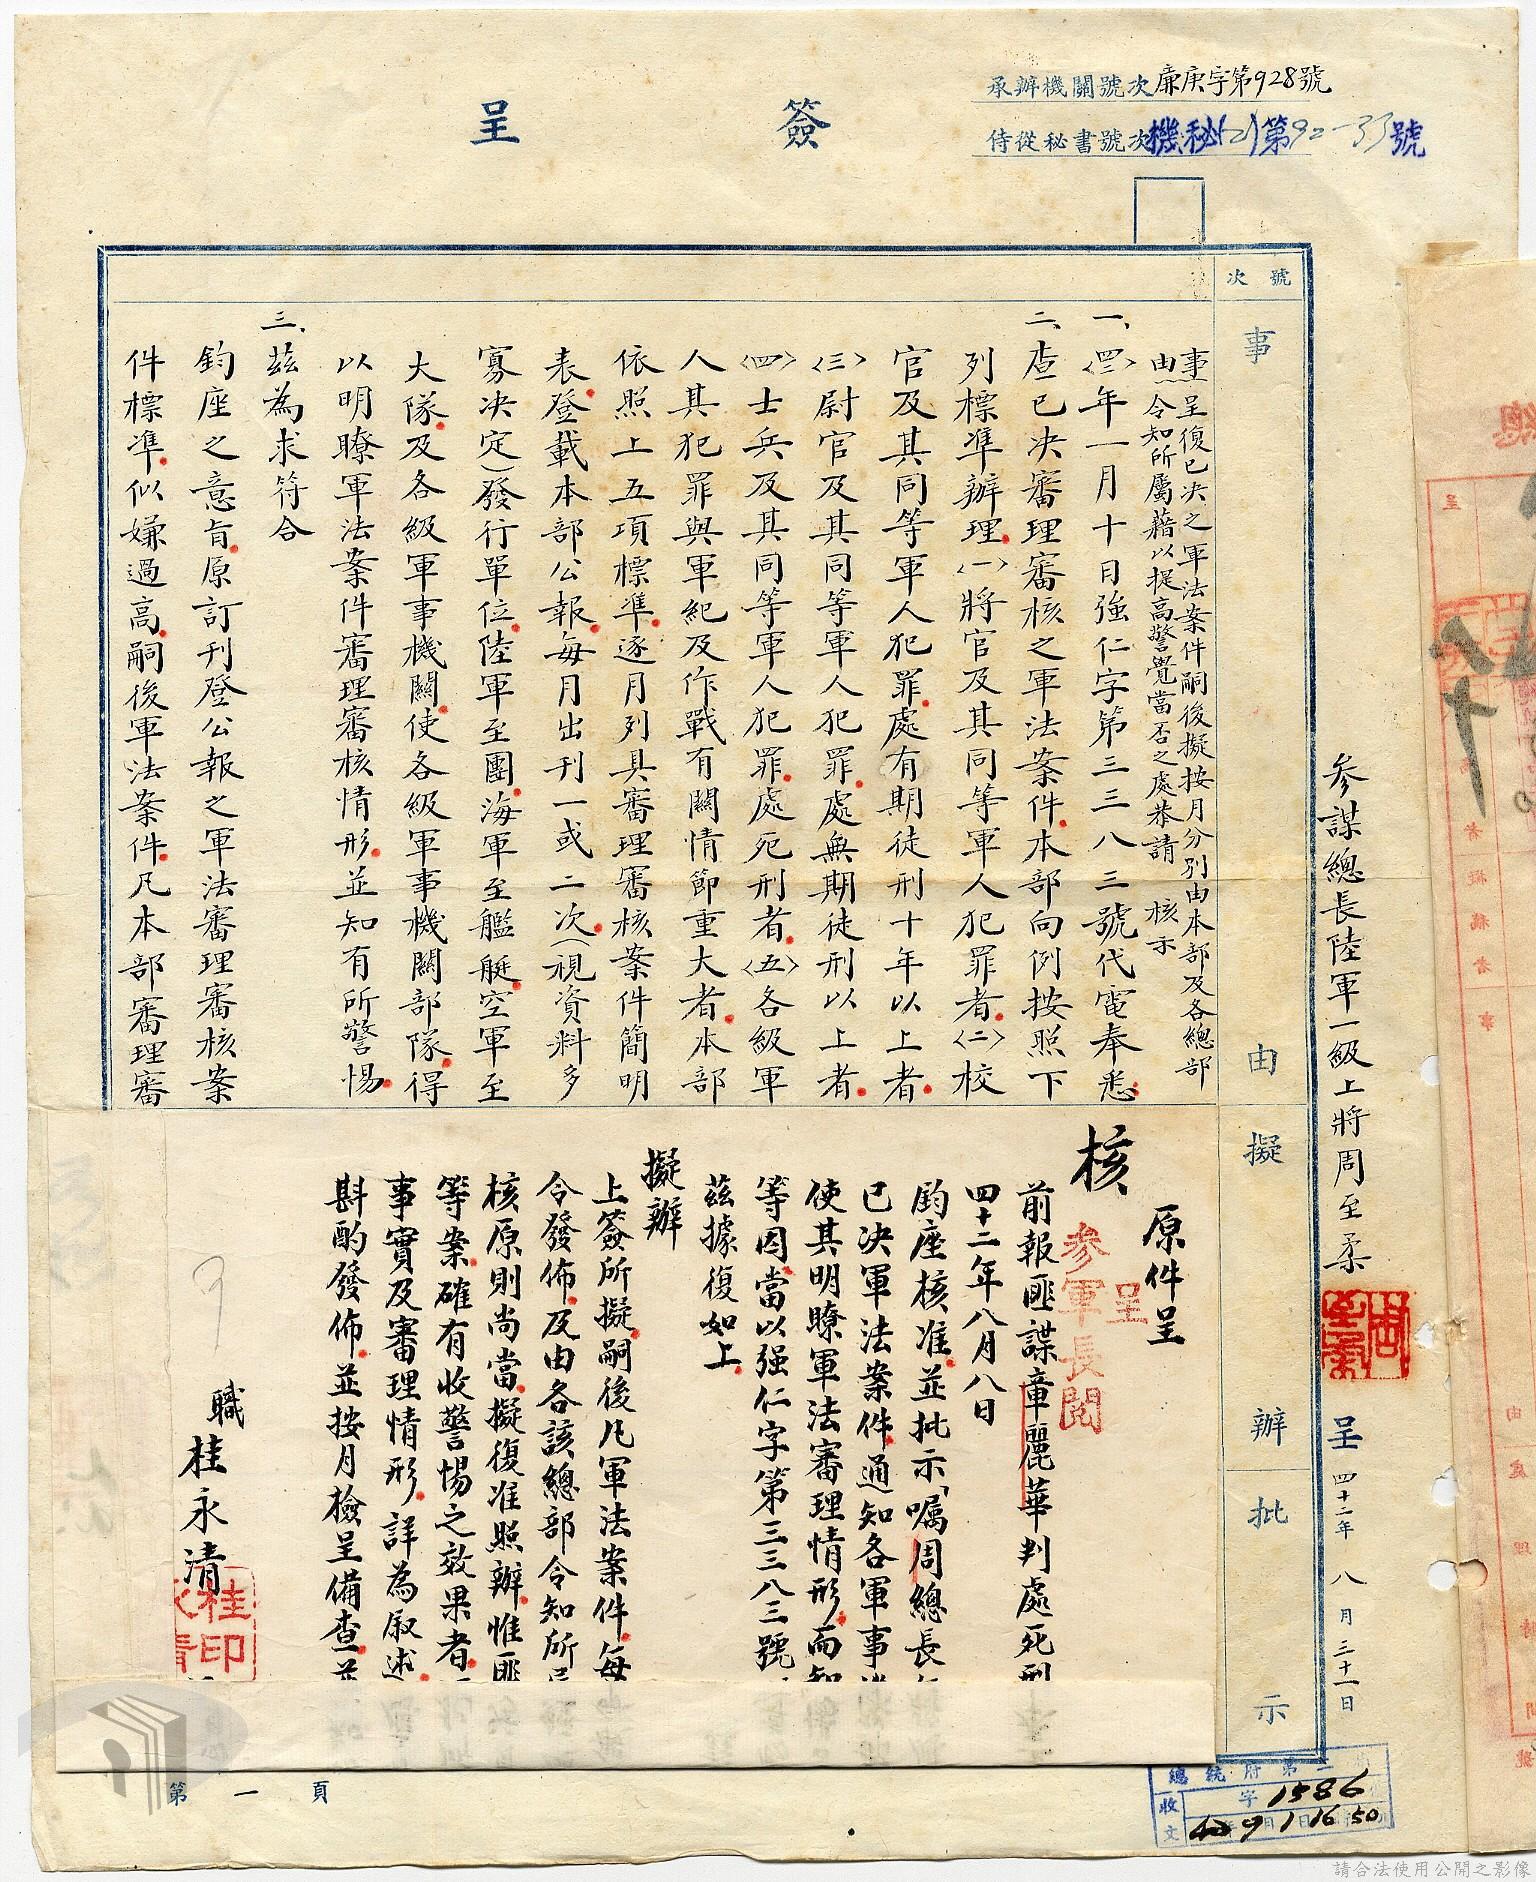 簽呈
承辦機關號次廉庚字第928號
侍從秘書號次機秘(2)第92-33號
號次
事由
擬辦
批示
參謀總長陸軍一級上將周至柔
呈
四十二年八月三十一日
事由：呈復已決之軍法案件嗣後擬按月分別由本部及各總部
令知所屬藉以提高警覺當否之處恭請 核示
一、四三年一月十日強仁字第三三八三號代電奉悉
二、查已決審理審核之軍法案件本部向例按照下
列標準辦理〈一〉將官及其同等軍人犯罪者〈二〉校
官及其同等軍人犯罪處有期徒刑十年以上者
〈三〉尉官及其同等軍人犯罪處無期徒刑以上者
〈四〉士兵及其同等軍人犯罪處死刑者〈五〉各級軍
人其犯罪與軍紀及作戰有關情節重大者本部
依照上五項標準逐月列具審理審核案件簡明
表登載本部公報每月出刊一或二次(視資料多
寡決定)發行單位陸軍至團海軍至艦艇空軍至
大隊及各級軍事機關使各級軍事機關部隊得
以明瞭軍法案件審理審核情形並知有所警惕
三、茲為求符合
鈞座之意旨原訂刊登公報之軍法審理審核案
件標準似嫌過高嗣後軍法案件凡本部審理審
原件呈
核
呈
參軍長閱
前報匪諜章麗華判處死刑
四十二年八月八日
鈞座核准並批示「囑周總長
已決軍法案件通知各軍事
使其明瞭軍法審理情形而知
等因當以強仁字第三三八三號
茲據復如上
擬辦
上簽所擬嗣後凡軍法案件每
令發佈及由各該總部令知所
核原則尚當擬復准照辦惟匪
等案確有收警惕之效果者
事實及審理情形詳為敘述
斟酌發佈並按月檢呈備查
職桂永清
桂永清印
第一頁
總統府第二
收文
字1586
42 9 1 16 50
請合法使用公開之影像